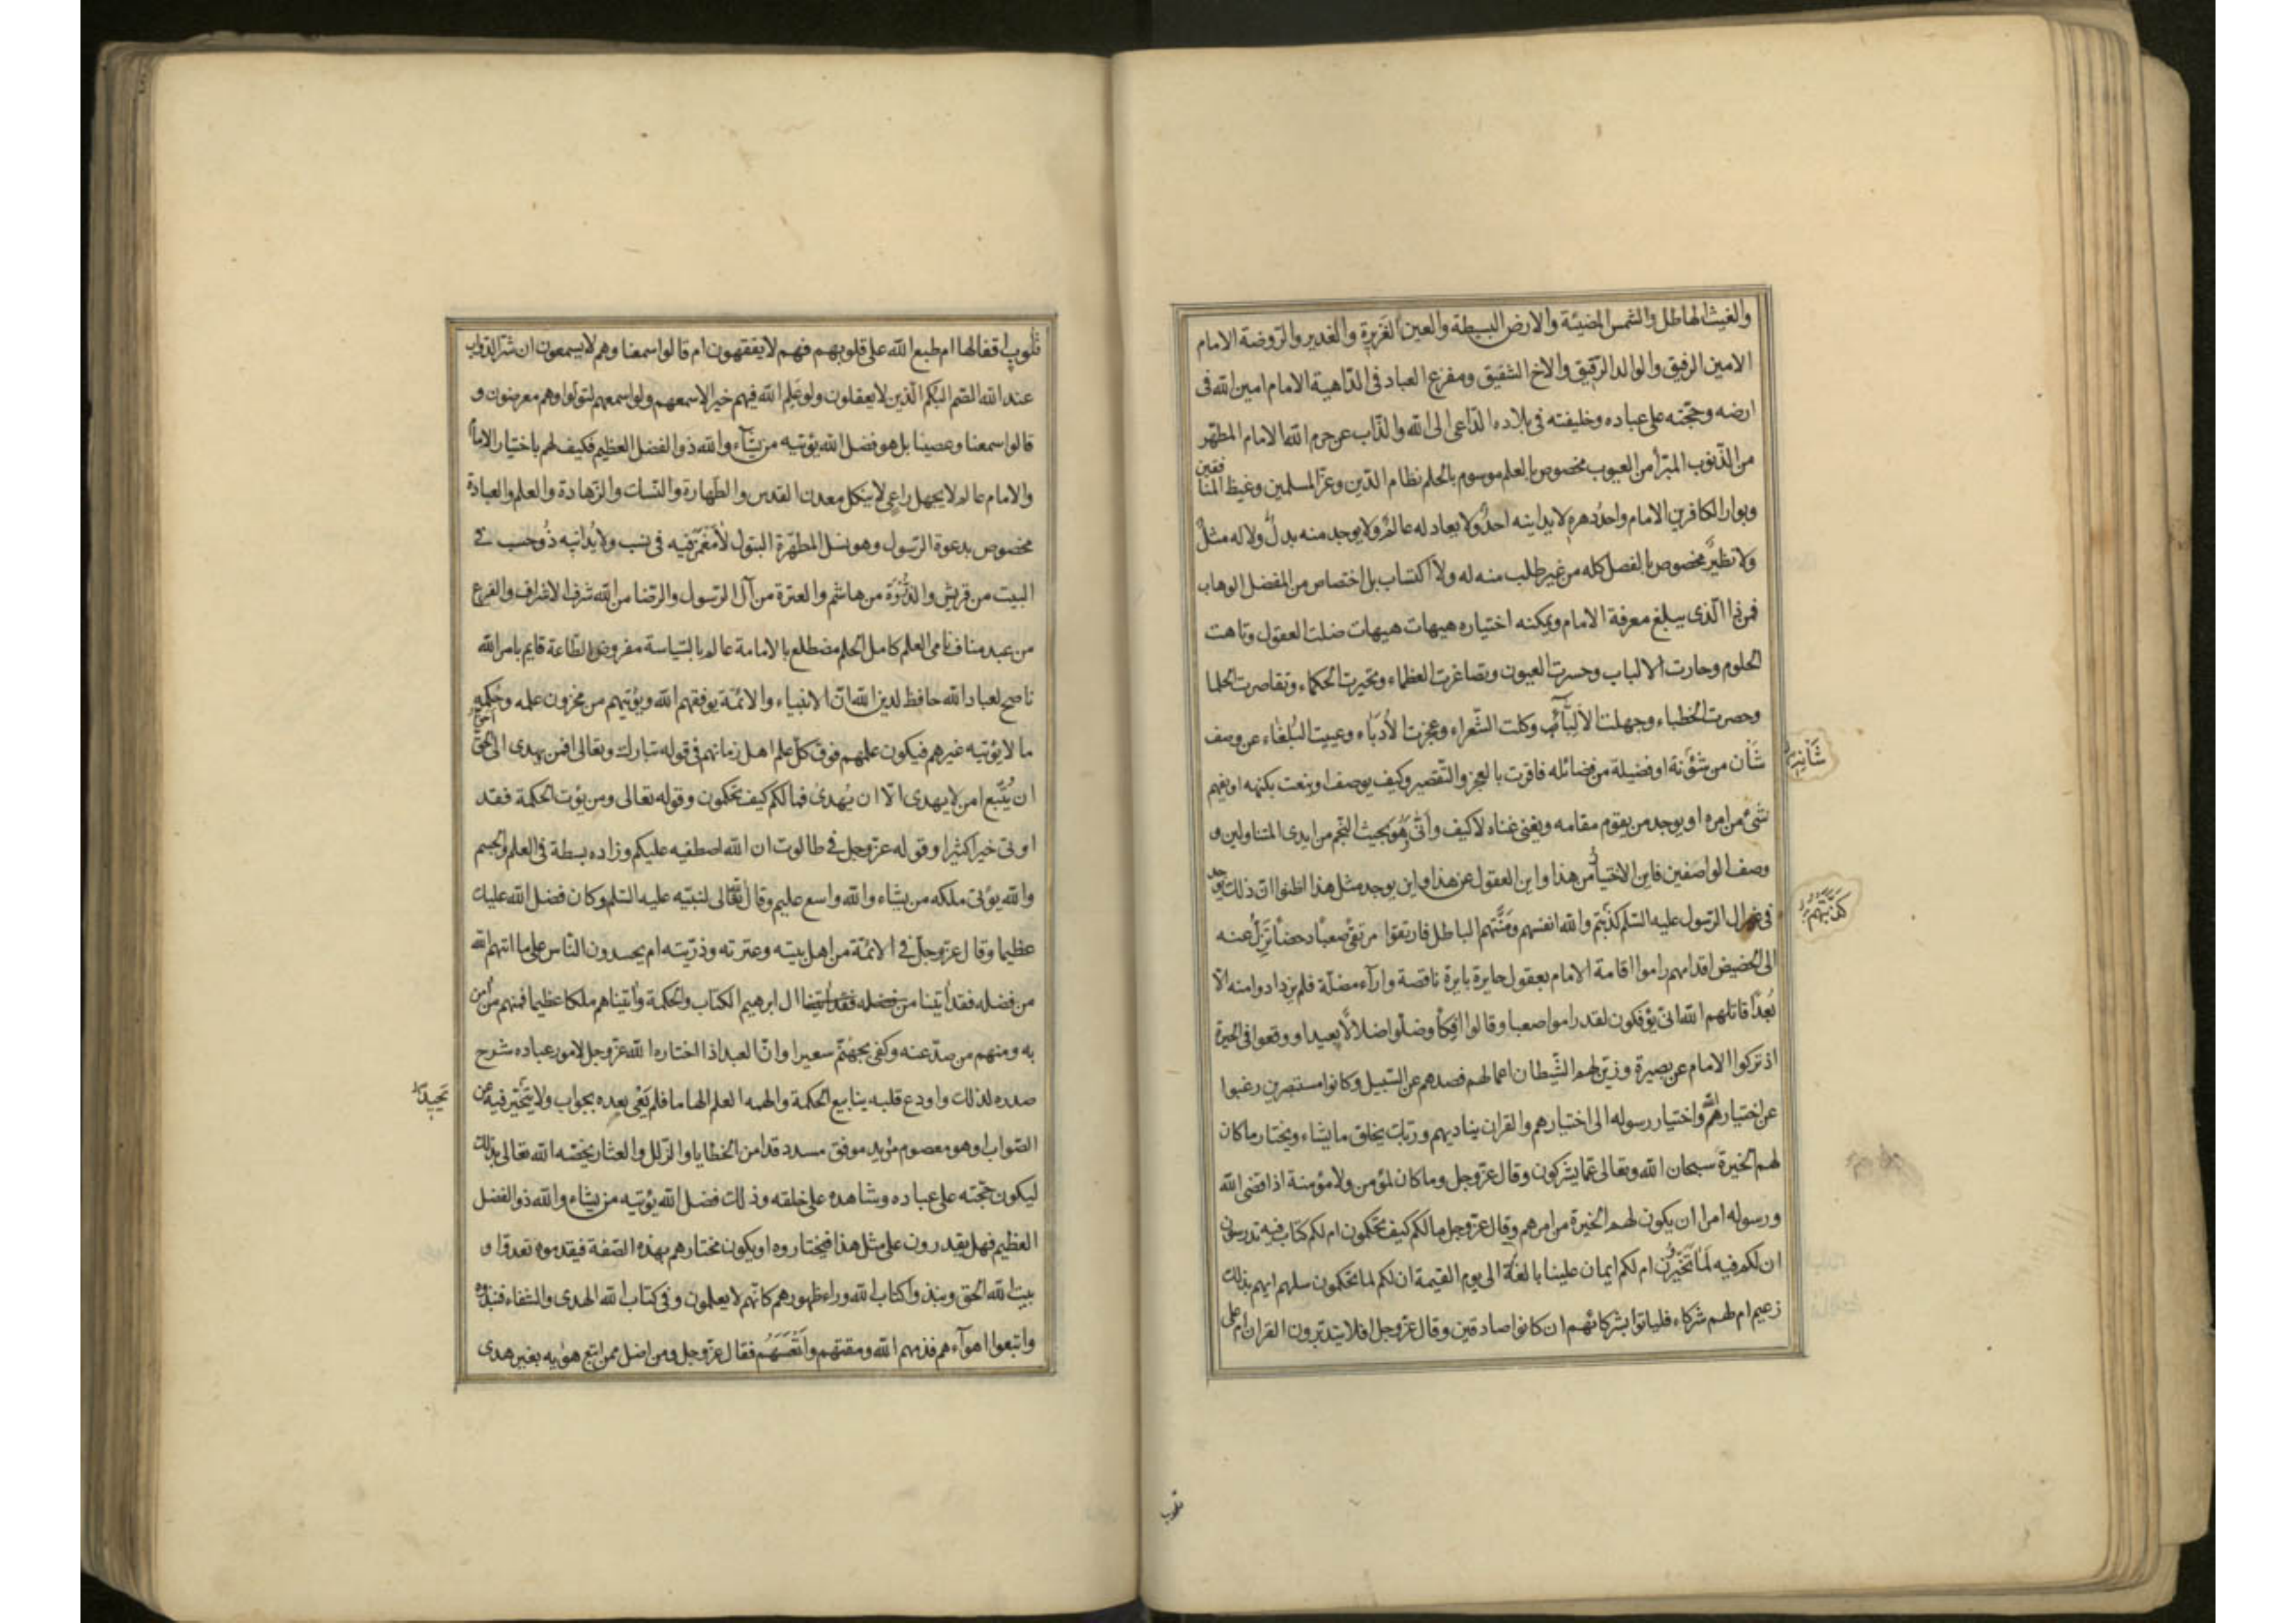 والغيث الهاطل والشمس المضيئة والارض البسيطة والعين الغَزِيرة والغدير والروضة الامام
الامين الرفيق والوالد الرّقيق والاخ الشقيق ومفزع العباد فى الدّاهية الامام امين الله فى
ارضه وحجّته على عباده وخليفته فى بلاده الدّاعى الى الله والذّاب عن حرم الله الامام المطهّر
من الذّنوب المبرّأ من العيوب مخصوص بالعلم موسوم بالحلم نظام الدّين وعزّ المسلمين وغيظ المنا
فقين
وبوار الكافرين الامام واحدُ دهرهِ لا يدانيه احدٌ ولا يعادله عالمٌ ولا يوجد منه بدلٌ ولا له مثلٌ
ولا نظيرٌ مخصوص بالفضل كله من غير طلب منه له ولا اكتساب بل اختصاص من المفضل الوهاب
فمن ذا الّذى يبلغ معرفة الامام ويمكنه اختياره هيهات هيهات ضلت العقول وتاهت
الحلوم وحارت الالباب وحسرت العيون وتصاغرت العظماء وتحيرت الحكماء وتقاصرت الحلما
وحصرت الخطباء وجهلت الالبّاء وكلت الشّعراء وعجزت الأدَباء وعييت البُلغاء عن وصف
شَأن من شؤنه او فضيلة من فضائله فاقرت بالعجز والتّقصير وكيف يوصف او ينعت بكنهه او يفهم
شَأنِه
شئ من امره او يوجد من يقوم مقامه ويغنى غناه لا كيف وأنّى وَهُوَ بحيث النّجم من ايدى المتناولين و
وصف الواصفين فاين الاختيار من هذا واين العقول عن هذا واين يوجد مثل هذا اظنوا ان ذلك يوجد
فى غير ال الرسول عليه السّلم كَذَبتهم والله انفسهم ومَنَّتهم الباطل فارتقوا مرتقىً صعباً دحضاً تَزِلّ عنه
كَذَبَتهُم
الى الحضيض اقدامهم راموا اقامة الامام بعقول حايرة بايرة ناقصة واراء مضلّة فلم يزدادوا منه الّا
بُعدًا قاتلهم الله انّى يؤفكون لقد راموا صعبا وقالوا افكاً وضلّوا ضلالاً بعيدا ووقعوا فى الحيرة
اذ تركوا الامام عن بصيرة وزيّن لهم الشّيطان اعمالهم فصدهم عن السّبيل وكانوا مستبصرين رغبوا
عن اختيار الله واختيار رسوله الى اختيارهم والقران يناديهم وربّك يخلق ما يشاء ويختار ما كان
لهم الخيرة سبحان الله وتعالى عمّا يشركون وقال عزّ وجل وما كان لمؤمن ولا مؤمنة اذا قضى الله
ورسوله امرا ان يكون لهم الخيرة من امرهم وقال عزّ وجل ما لكم كيف تحكمون ام لكم كتاب فيه تدرسون
ان لكم فيه لَمَا تَخَيَّرون ام لكم ايمان علينا بالغة الى يوم القيمة ان لكم لما تحكمون سلهم ايهم بذلك
زعيم ام لهم شركاء فلياتوا بشركائهم ان كانوا صادقين وقال عزّ وجل افلا يتدبّرون القران ام على
قلوب
قُلُوبٍ اقفالها ام طبع الله على قلوبهم فهم لا يفقهون ام قالوا سمعنا وهم لا يسمعون ان شرّ الدّواب
عند الله الصّم البُكم الّذين لا يعقلون ولو عَلِم الله فيهم خيرا لاسمعهم ولو اسمعهم لتولّوا وهم معرضون و
قالوا سمعنا وعصينا بل هو فضل الله يؤتيه من يشَاء والله ذو الفضل العظيم فكيف لهم باختيار الاما
والامام عالم لا يجهل راعٍى لا ينكل معدن القدس والطّهارة والنّسك والزّهادة والعلم والعبادة
مخصوص بدعوة الرّسول وهو نسل المطهّرة البتول لا مَغْمَز فيه فى نسب ولا يُدانيه ذُو حسب فى
البيت من قريش والذُّروَة من هاشم والعترة من آل الرّسول والرّضا من الله شرف الاشراف والفرع
من عبد مناف نامى العلم كامل الحلم مضطلع بالامامة عالم بالسّياسة مفروض الطّاعة قايم بامر الله
ناصح لعباد الله حافظ لدين الله انّ الانبياء والائمّة يوفقهم الله ويؤتيهم من مخزون علمه وحُكمهِ
ما لا يؤتيه غيرهم فيكون علمهم فوق كلّ علم اهل زمانهم فى قوله تبارك وتعالى افمن يهدى الى الحقّ
احق
ان يُتّبع امن لا يهدى الّا ان يُهدى فما لكم كيف تحكمون وقوله تعالى ومن يؤت الحكمة فقد
اوتى خيرا كثيرا وقوله عزّ وجل فى طالوت ان الله اصطفيه عليكم وزاده بسطة فى العلم والجسم
والله يؤتى ملكه من يشاء والله واسع عليم وقال تعالى لنبيّه عليه السّلم وكان فضل الله عليك
عظيما وقال عزّ وجلّ فى الائمّة من اهل بيته وعترته وذرّيّته ام يحسدون النّاس على ما اتيهم الله
من فضله فقد اتينا من فضله فقد اتينا ال ابرهيم الكتاب والحكمة واتيناهم ملكا عظيما فمنهم من امن
به ومنهم من صدّ عنه وكفى بجهنّم سعيرا وانّ العبد اذا اختاره الله عزّ وجل لامور عباده شرح
صدره لذلك واودع قلبه ينابيع الحكمة والهمه العلم الهاما فلم يَعْىَ بعده بجواب ولا يتحيّر فيه عن
الصّواب وهو معصوم مؤيد موفق مسدد قد امن الخطايا والزلل والعثار يخصّه الله تعالى بذلك
ليكون حجّته على عباده وشاهده على خلقه وذلك فضل الله يؤتيه من يشاء والله ذو الفضل
العظيم فهل يقدرون على مثل هذا فيختاروه او يكون مختارهم بهذه الصّفة فيقدموه تعدوا و
بيت الله الحق ونبذوا كتاب الله وراء ظهورهم كانّهم لا يعلمون وفى كتاب الله الهدى والشّفاء فنبذوه
واتبعوا اهوآءهم فذمهم الله ومقتهم واَتْعَسَهُم فقال عزّ وجل ومن اضل ممن اتبع هويه بغير هدى